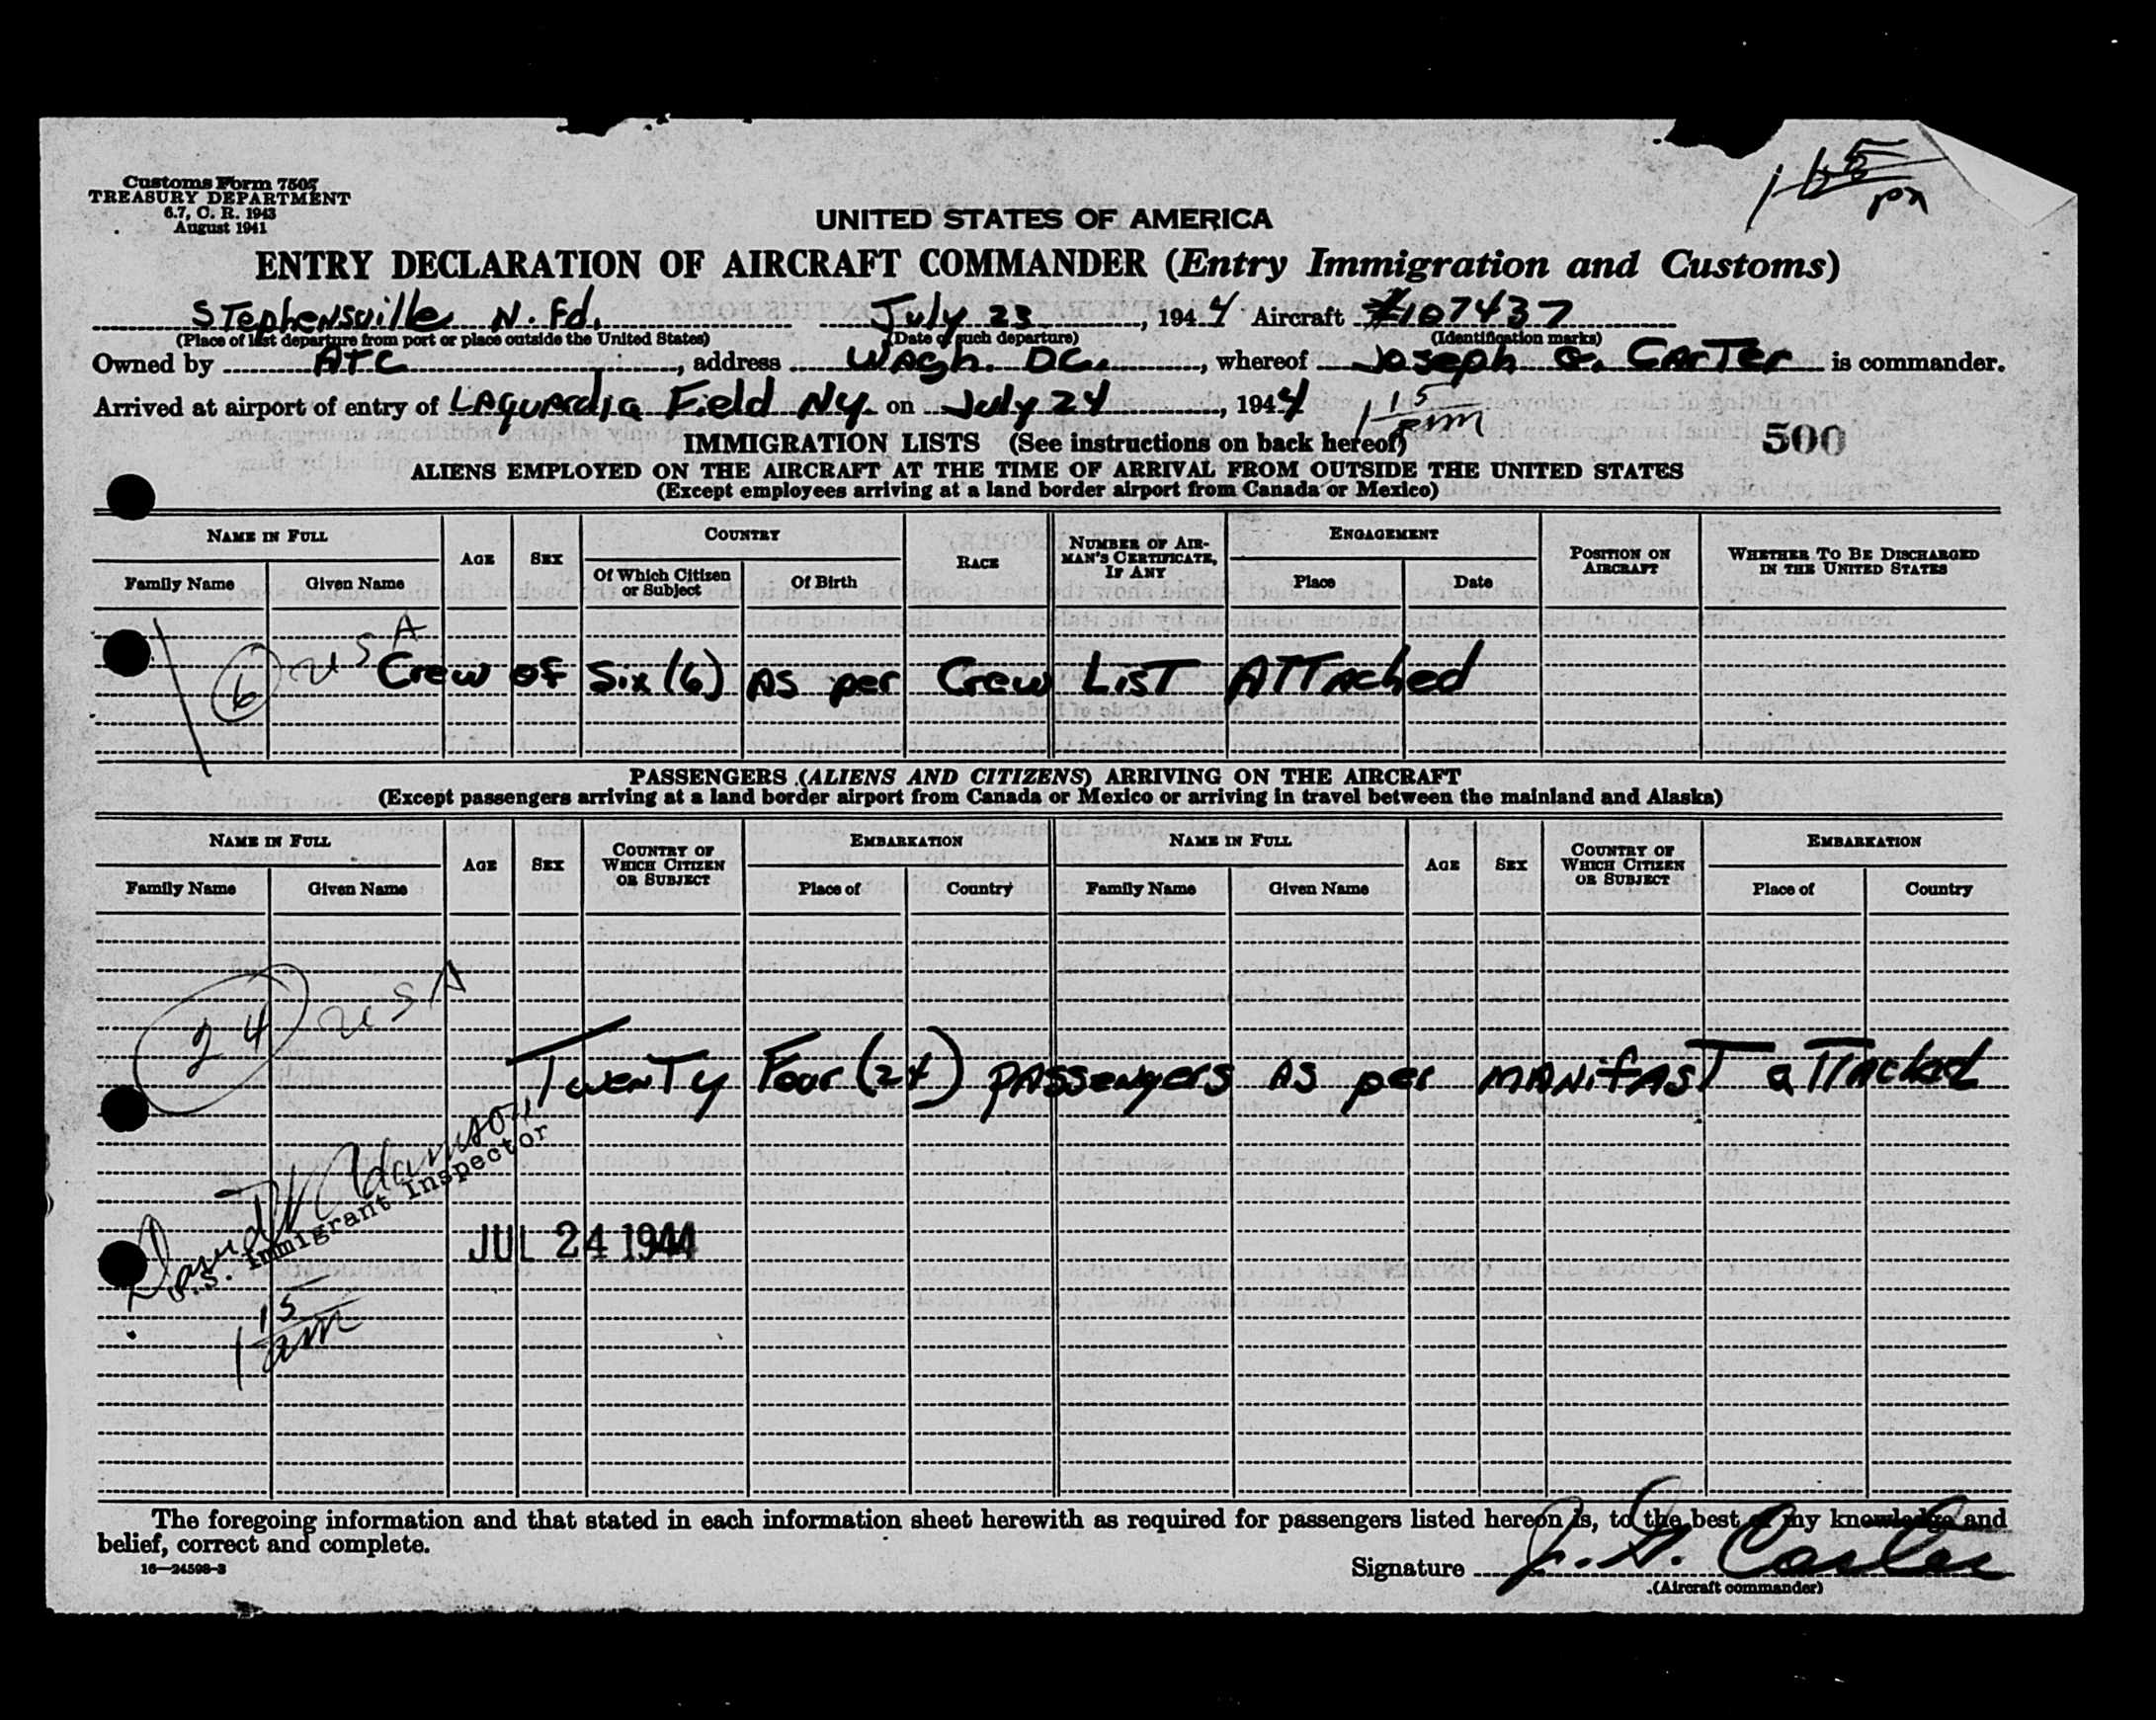 Customs Form 7507
TREASURY DEPARTMENT
6.7, C. R. 1943
August 1941
pm
UNITED STATES OF AMERICA
ENTRY DECLARATION OF AIRCRAFT COMMANDER (Entry Immigration and Customs)
STephensville N. Fd. July 23, 1944 Aircraft #107437
(Place of last departure from port or place outside the United States) (Date of such departure) (Identification marks)
Owned by ATC, address WAsh. DC., whereof Joseph G. CArTer is commander.
Arrived at airport of entry of LAguardia Field NY. on July 24, 1944 1 15 am
IMMIGRATION LISTS (See instructions on back hereof) 500
ALIENS EMPLOYED ON THE AIRCRAFT AT THE TIME OF ARRIVAL FROM OUTSIDE THE UNITED STATES
(Except employees arriving at a land border airport from Canada or Mexico)
NAME IN FULL AGE SEX COUNTRY RACE NUMBER OF AIRMAN'S CERTIFICATE, IF ANY ENGAGEMENT POSITION ON AIRCRAFT WHETHER TO BE DISCHARGED IN THE UNITED STATES
Family Name Given Name Of Which Citizen or Subject Of Birth Place Date
6 USA
Crew of Six (6) AS per Crew LisT ATTAched
PASSENGERS (ALIENS AND CITIZENS) ARRIVING ON THE AIRCRAFT
(Except passengers arriving at a land border airport from Canada or Mexico or arriving in travel between the mainland and Alaska)
NAME IN FULL AGE SEX COUNTRY OF WHICH CITIZEN OR SUBJECT EMBARKATION NAME IN FULL AGE SEX COUNTRY OF WHICH CITIZEN OR SUBJECT EMBARKATION
Family Name Given Name Place of Country Family Name Given Name Place of Country
24 USA
TwenTy Four (24) pAssengers AS per MANifAsT aTTAched
David Adamson
U.S. Immigrant Inspector
JUL 24 1944
1 15 am
The foregoing information and that stated in each information sheet herewith as required for passengers listed hereon is, to the best of my knowledge and
belief, correct and complete.
16—24598-3
Signature J. G. Carter
(Aircraft commander)